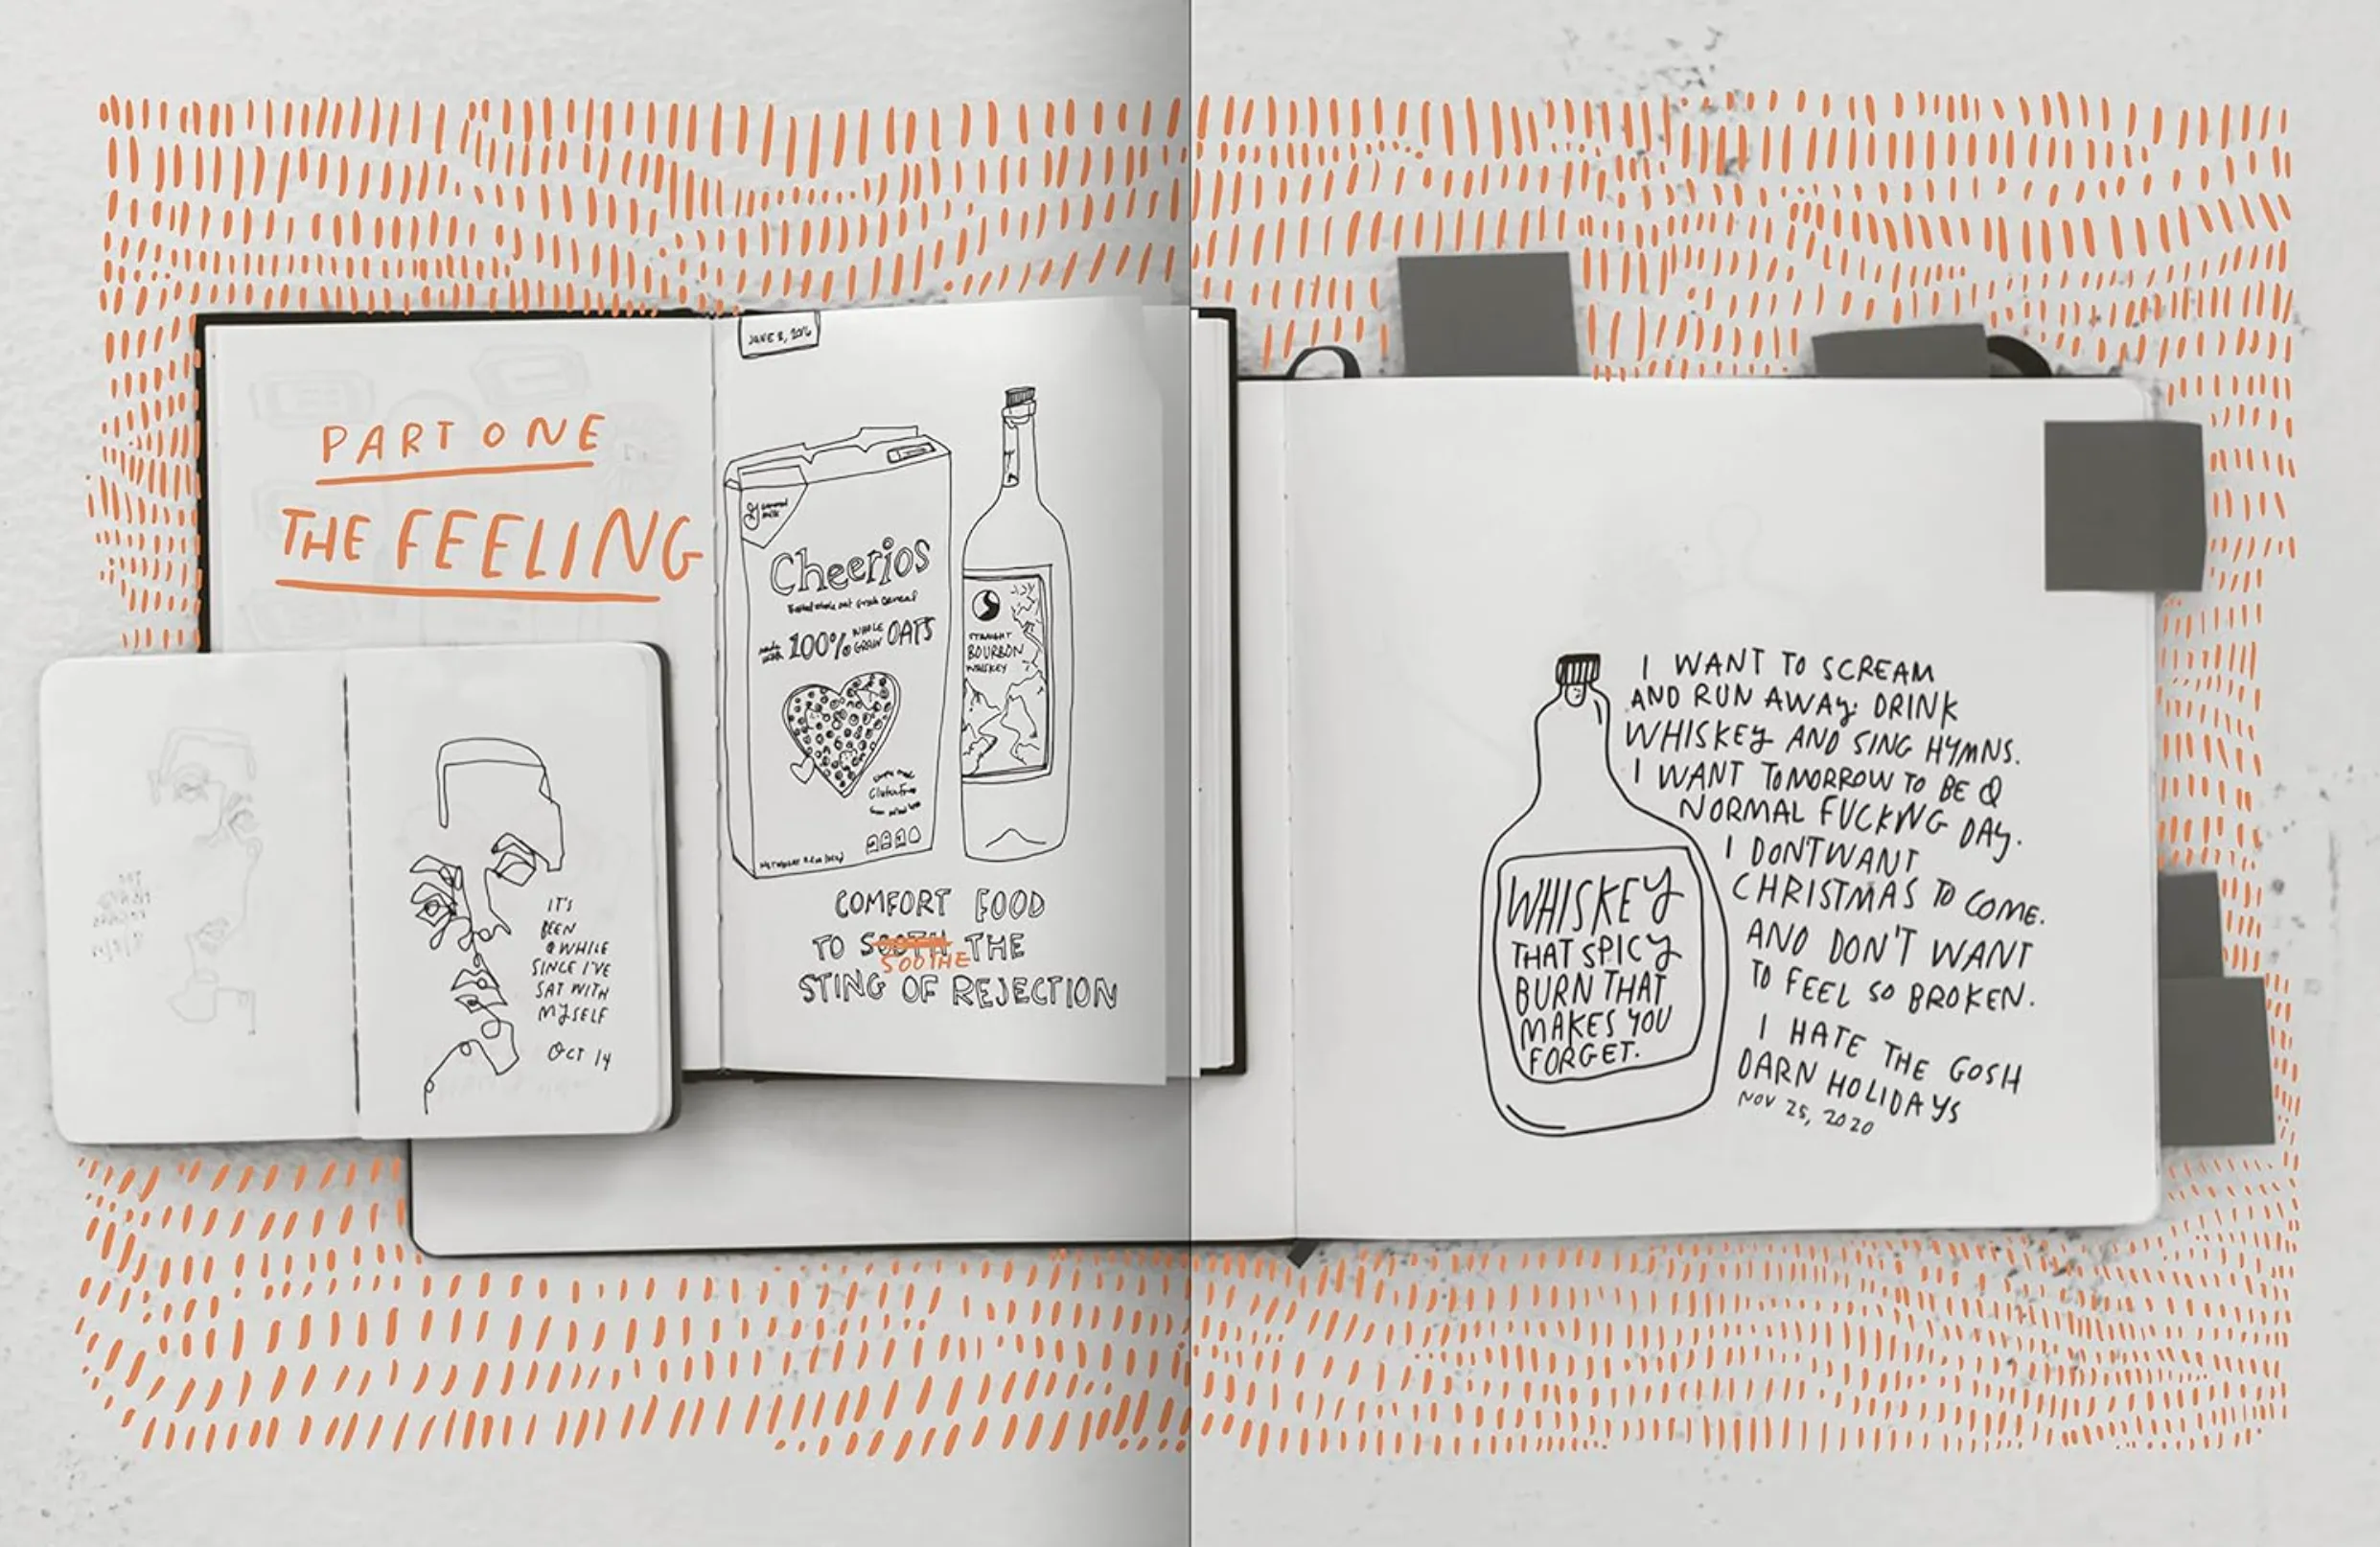 PART ONE
THE FEELING
JUNE 8, 2016
Cheerios
100% WHOLE
GRAIN OATS
STRAIGHT
BOURBON
WHISKEY
COMFORT FOOD
TO SOOTH THE
SOOTHE
STING OF REJECTION
IT'S
BEEN
A WHILE
SINCE I'VE
SAT WITH
MYSELF
OCT 14
I WANT TO SCREAM
AND RUN AWAY. DRINK
WHISKEY AND SING HYMNS.
I WANT TOMORROW TO BE A
NORMAL FUCKING DAY.
I DON'T WANT
CHRISTMAS TO COME.
AND DON'T WANT
TO FEEL SO BROKEN.
I HATE THE GOSH
DARN HOLIDAYS
NOV 25, 2020
WHISKEY
THAT SPICY
BURN THAT
MAKES YOU
FORGET.